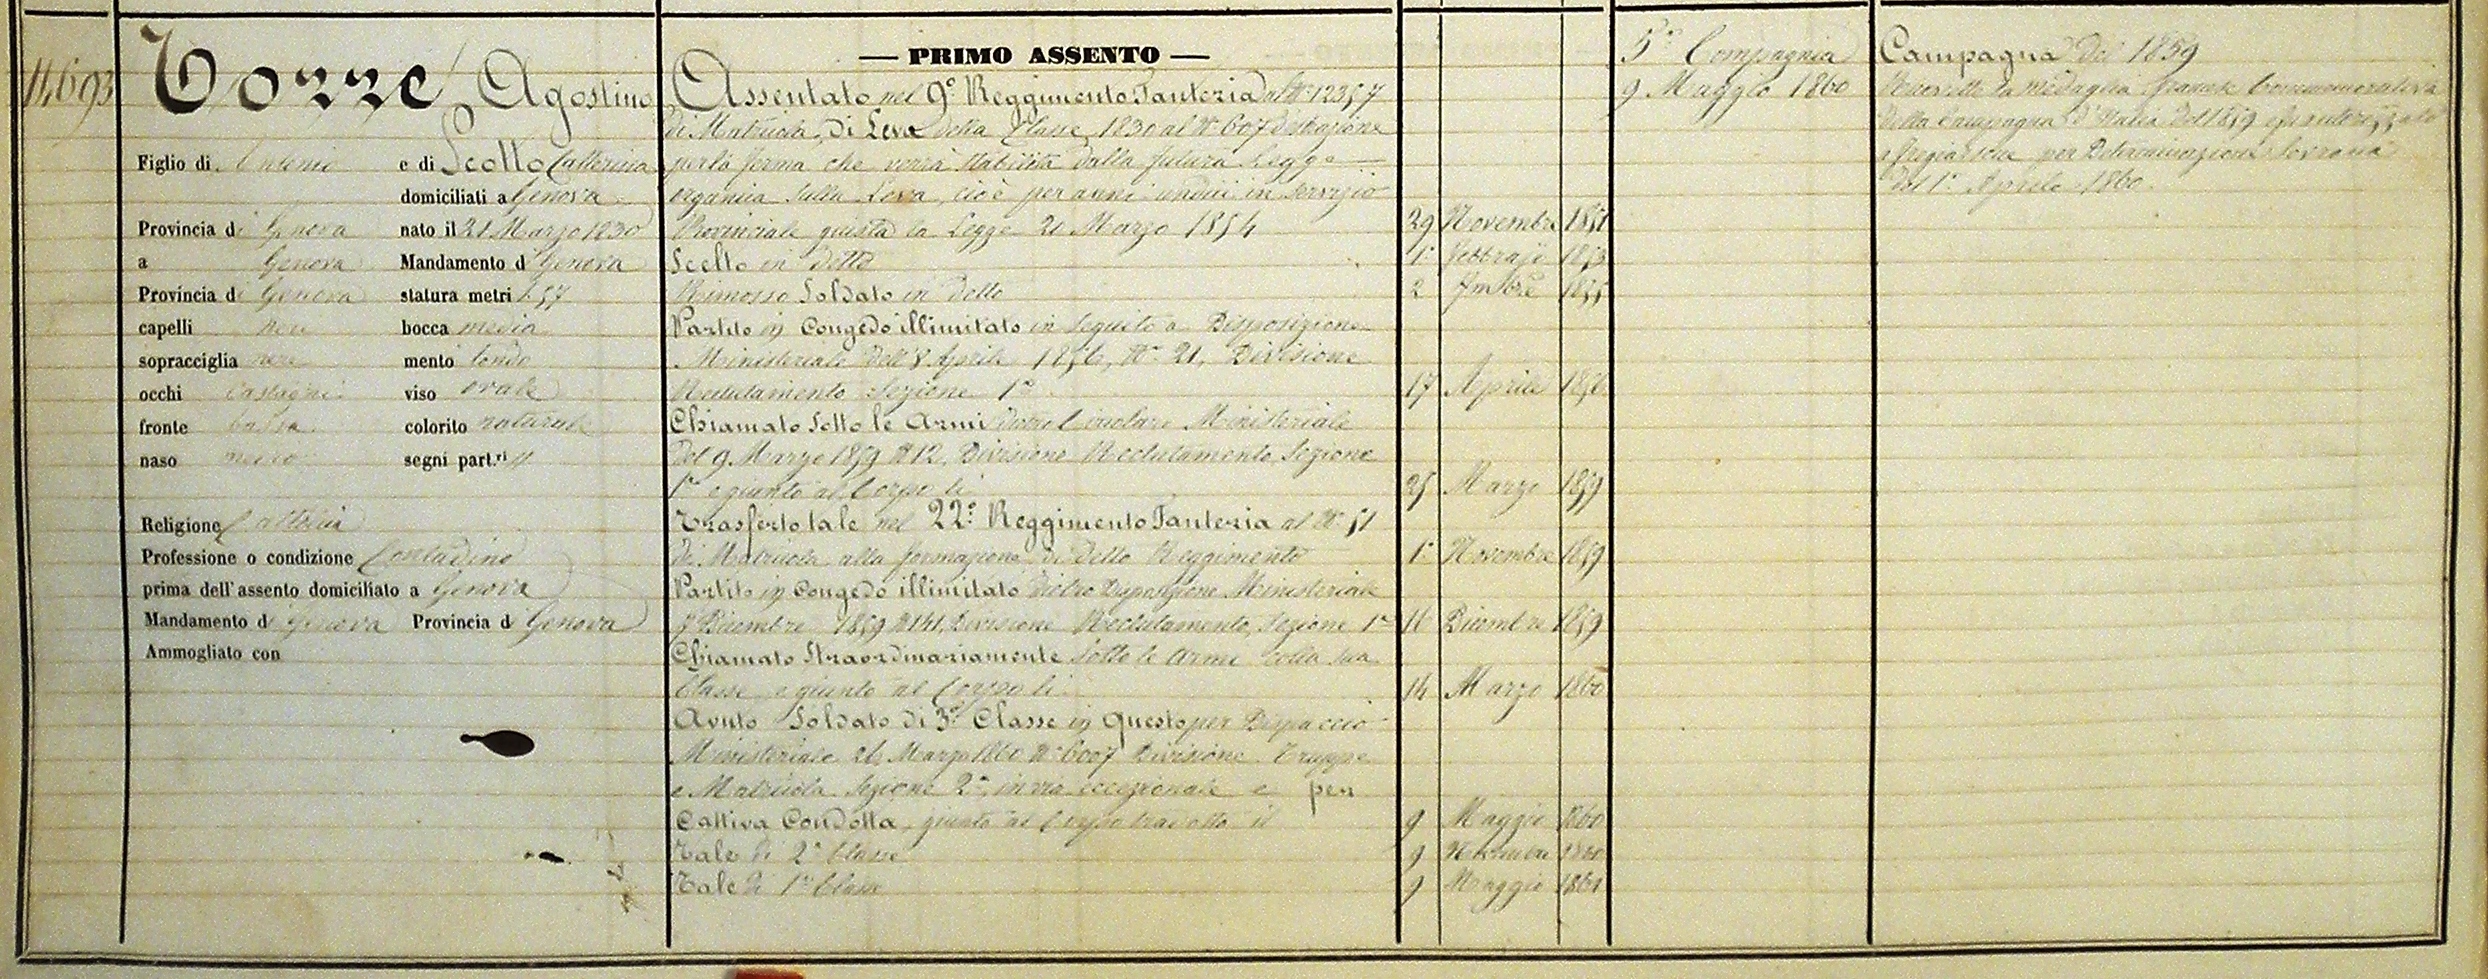 11693
Torre Agostino
Figlio di Antonio e di Scotto Catterina
domiciliati a Genova
Provincia di Genova nato il 21 Marzo 1830
a Genova Mandamento di Genova
Provincia di Genova statura metri 1.57
capelli neri bocca media
sopracciglia nere mento tondo
occhi castagni viso ovale
fronte bassa colorito naturale
naso medio segni part.ri //
Religione Cattolica
Professione o condizione Contadino
prima dell'assento domiciliato a Genova
Mandamento di Genova Provincia di Genova
Ammogliato con
— PRIMO ASSENTO —
Assentato nel 9° Reggimento Fanteria al N° 12357
di Matricola, di Leva della Classe 1830 al N° 607 d'estrazione
sotto forma che verrà stabilita dalla futura Legge
organica sulla Leva, cioè per anni undici in servizio
Provinciale giusta la Legge 20 Marzo 1854 29 Novembre 1851
Scelto in detto 1° Febbrajo 1853
Rimosso Soldato in detto 2 1855
Partito in Congedo illimitato in seguito a Disposizione
Ministeriale dell'8 Aprile 1856, N° 21, Divisione
Reclutamento Sezione 1a 17 Aprile 1856
Chiamato sotto le Armi dietro Circolare Ministeriale
del 9 Marzo 1859 N 12, Divisione Reclutamento, Sezione
1a e giunto al Corpo li 25 Marzo 1859
Trasferto tale nel 22° Reggimento Fanteria al N° 51
di Matricola alla formazione di detto Reggimento 1° Novembre 1859
Partito in Congedo illimitato dietro Disposizione Ministeriale
7 Dicembre 1859 N 141, Divisione Reclutamento, Sezione 1a 16 Dicembre 1859
Chiamato Straordinariamente sotto le armi colla sua
Classe e giunto al Corpo li 14 Marzo 1860
Avuto Soldato di 3a Classe in questo per Dispaccio
Ministeriale 26 Marzo 1860 N° 6007 Divisione Truppe
e Matricola Sezione 2a, in via eccezionale e per
Cattiva Condotta, giunto al Corpo tradotto il 9 Maggio 1860
Tale di 2a Classe 9 Novembre 1860
Tale di 1a Classe 9 Maggio 1861
5a Compagnia
9 Maggio 1860
Campagna del 1859
la Medaglia francese Commemorativa
della Campagna d'Italia del 1859 ed autorizzato
a fregiarsene per Determinazione Sovrana
del 1° Aprile 1860.